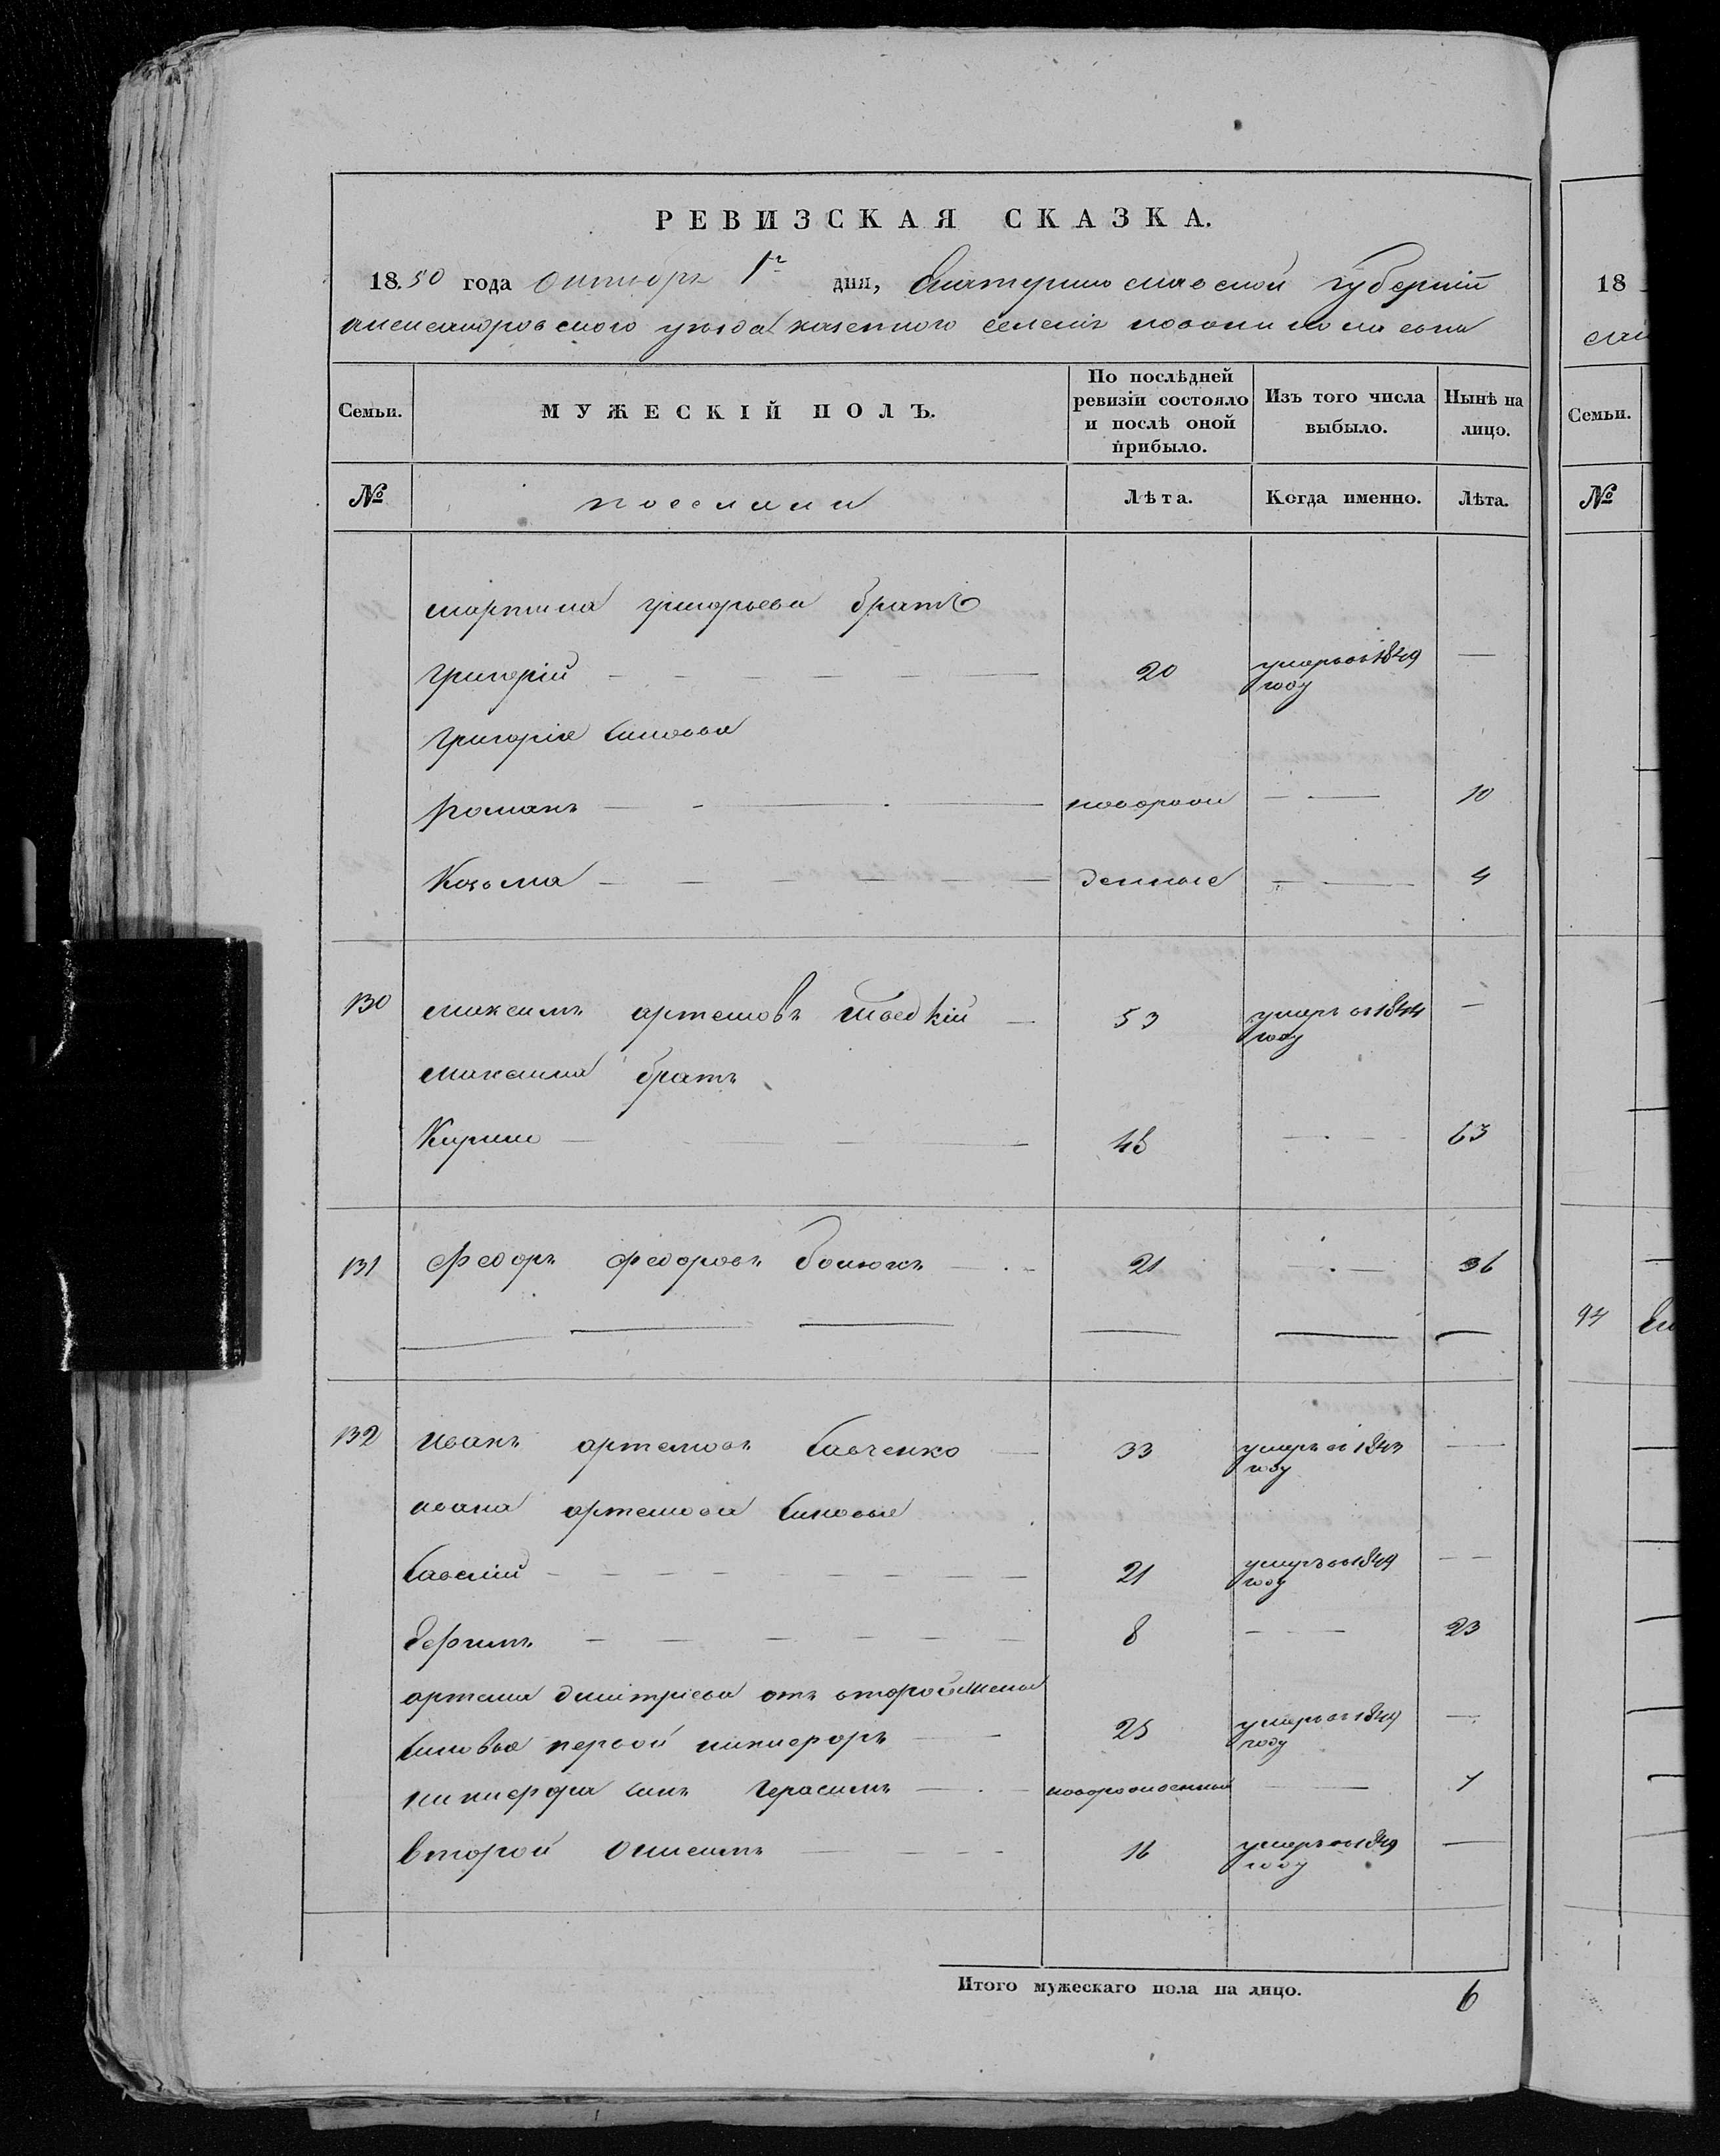 РЕВИЗСКАЯ СКАЗКА.
18.50 года октября 1го дня, Екатеринославской губернии
александровского уезда казенного селения
Семьи. МУЖЕСКІЙ ПОЛЪ. По послѣдней ревизіи состояло и послѣ оной прибыло. Изъ того числа выбыло. Нынѣ на лицо.
№ Лѣта. Когда именно. Лѣта.
мартина григорьева братъ
григорій 20 умеръ въ 1849 году —
григорія синовья
романъ новорож — 10
Козьма денные — 4
130 максимъ артемовъ 53 умеръ въ 1844 году —
максима братъ
Кирило 48 — 63
131 Федоръ федоровъ 21 — 36
132 иванъ артемовъ Савченко 33 умеръ въ 1843 году —
ивана артемова синовья
Савелій 21 умеръ въ 1849 году —
Іефимъ 8 — 23
артема дмитріева отъ второй жены
синовья первой никифоръ 25 умеръ въ 1849 году —
никифора синъ герасимъ новорожденный — 7
второй онисимъ 16 умеръ въ 1849 году —
Итого мужескаго пола на лицо. 6
18
Семьи.
№
94